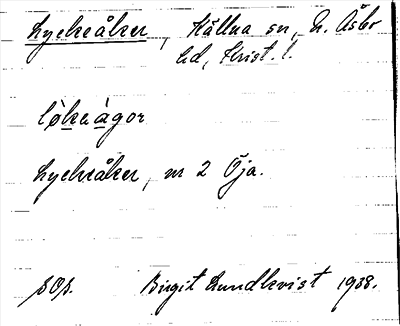 Lyckeåker, Hällna sn, N. Åsbo
hd, Krist. l.
lø̀keàgor
Lyckeåker, nr 2 Öja.
sOs. Birgit Lundkvist 1938.